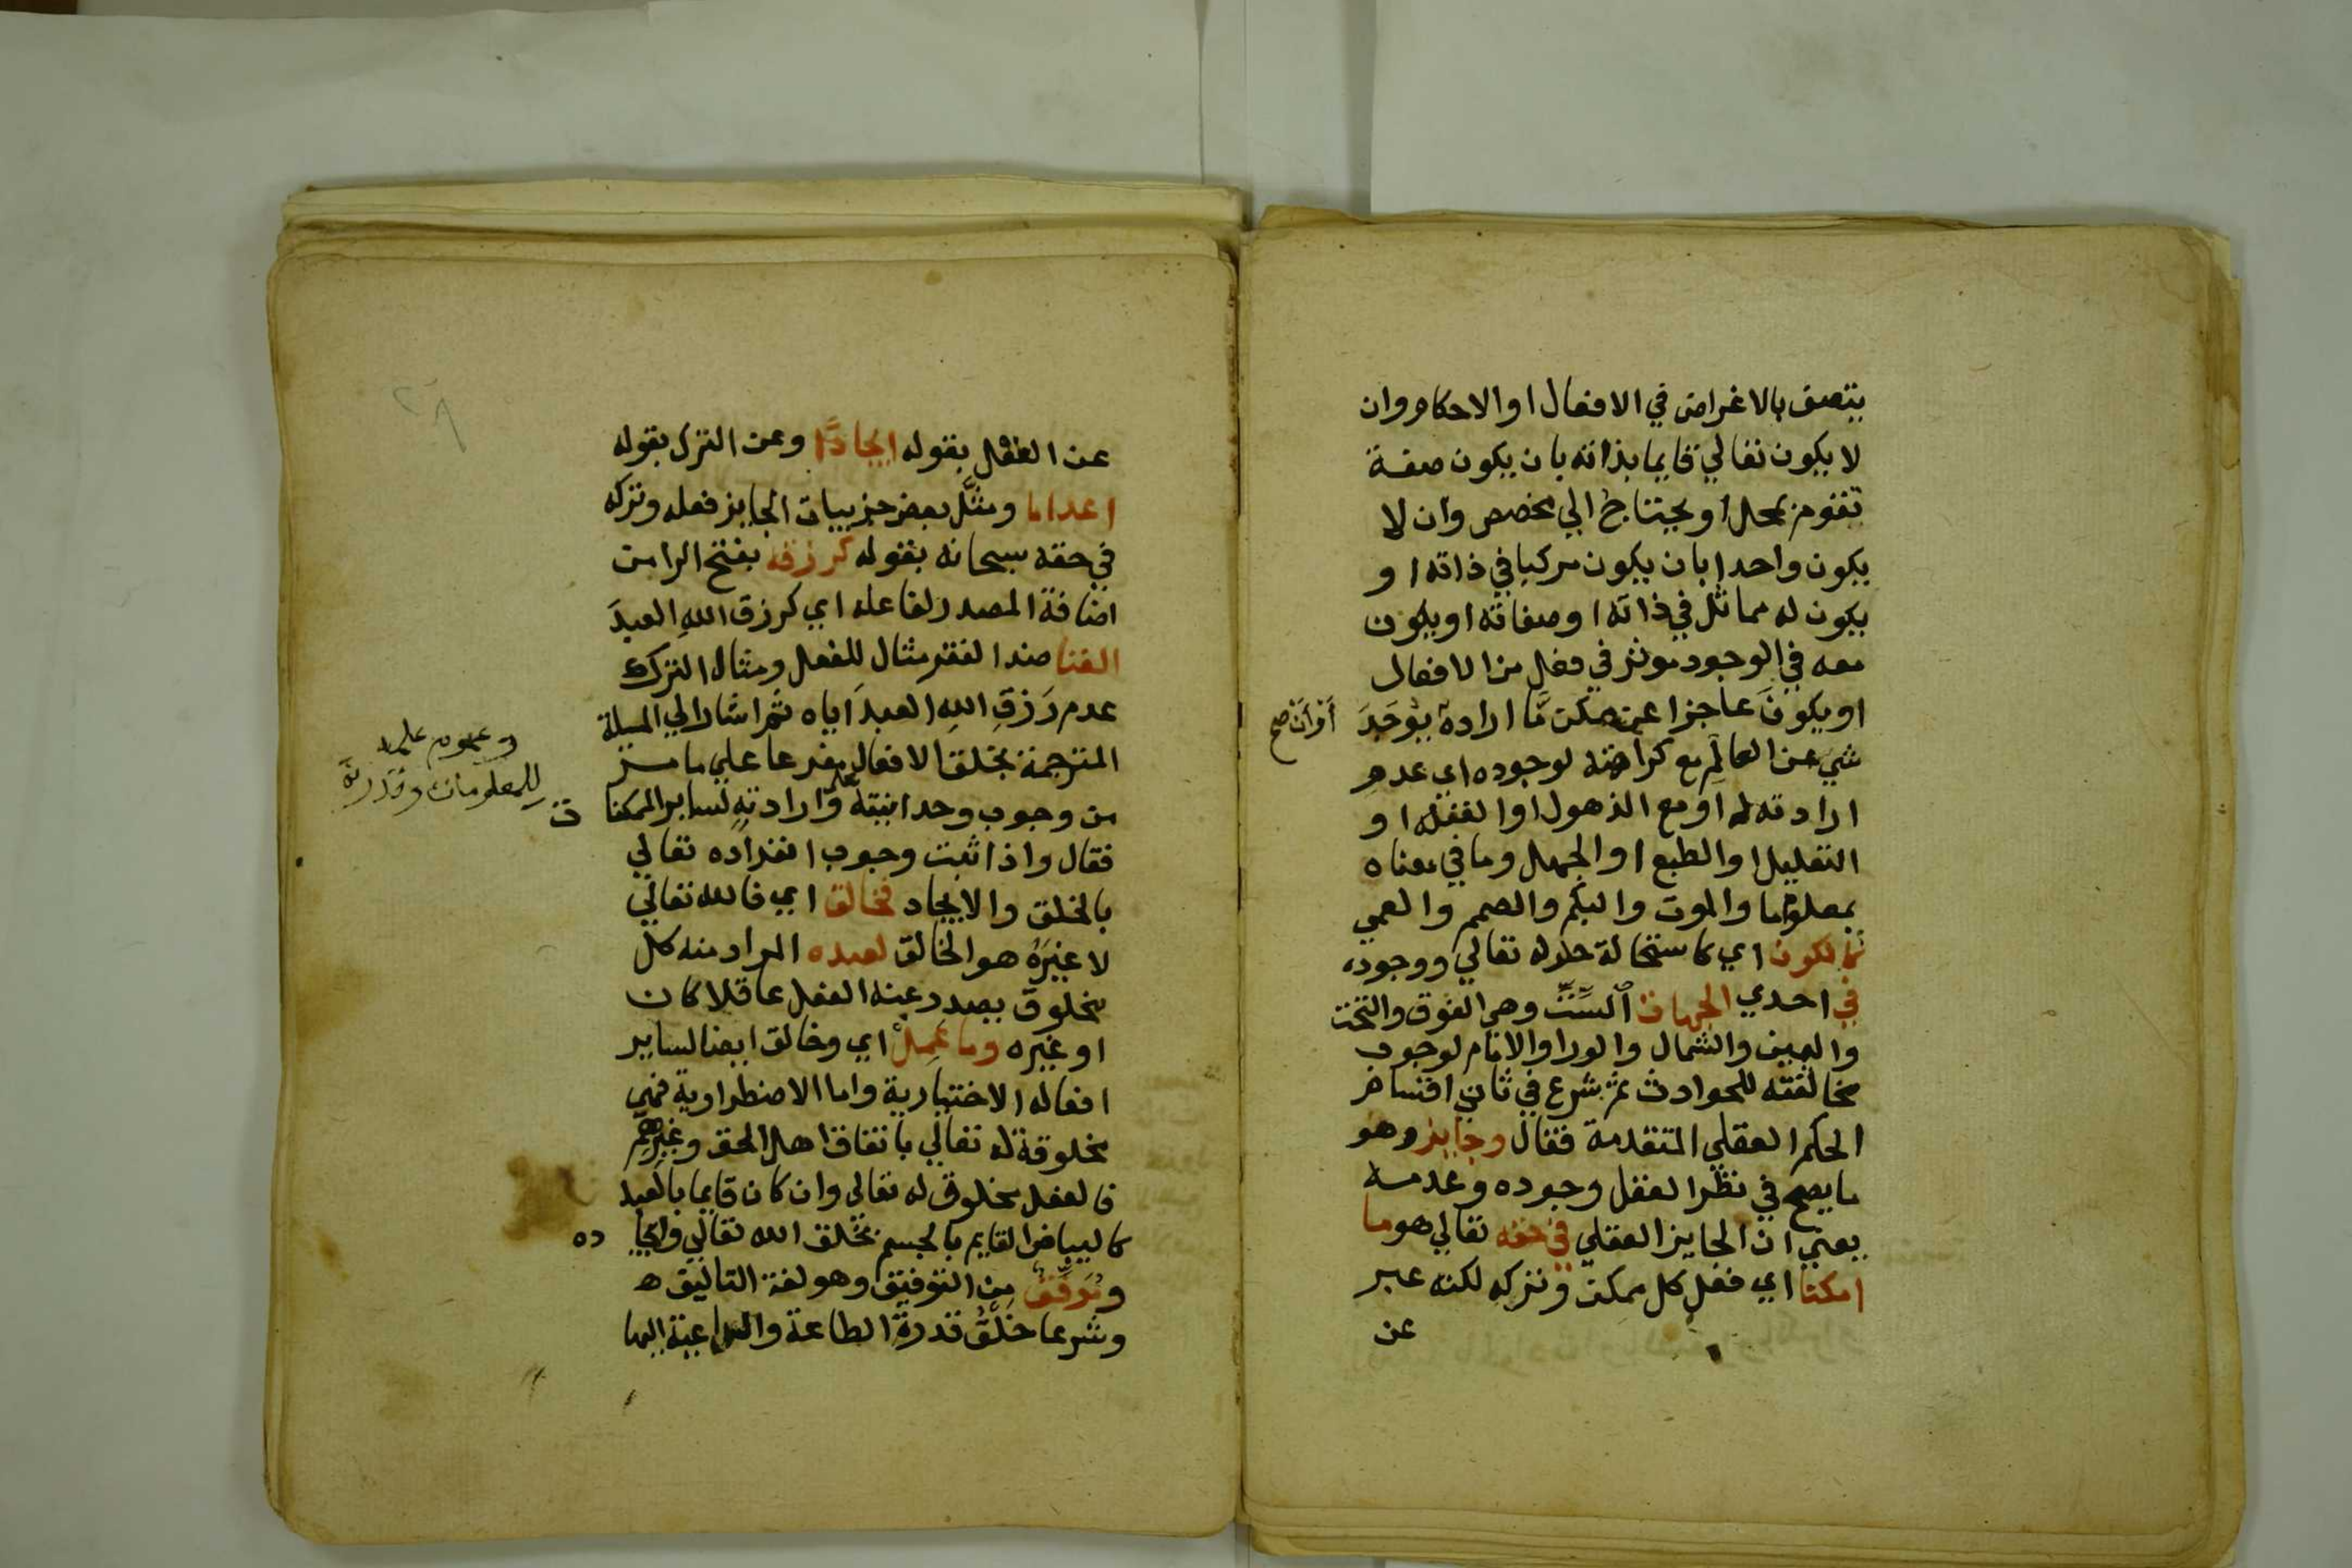 يتصف بالاغراض في الافعال او الاحكام وان
لا يكون تعالي قايما بذاته بان يكون صفة
تقوم بمحل او يحتاج الي مخصص وان لا
يكون واحدا بان يكون مركبا في ذاته او
يكون له مماثل في ذاته او صفاته او يكون
معه في الوجود موثر في فعل من الافعال
او يكونَ عاجزا عن ممكن مَّا ارادة يوْجَدَ
أوْ أنْ صح
شي عن العالَمِ مع كراهته لوجوده اي عدم
ارادته له او مع الذهول او الغفلة او
التعليل او الطبع او الجهل وما في معناه
بمعلوم ما والموت والبكم والصمم والعمي
اي كاستحالة حلوله تعالي ووجوده
في احدي الجهات السِّتّ وهي الفوق والتحت
واليمين والشمال والورا والامام لوجوب
مخالفته للحوادث ثم شرع في ثاني اقسام
الحكم العقلي المتقدمة فقال وجايز وهو
ما يصح في نظر العقل وجوده وعدمه
يعني ان الجايز العقلي في حقه تعالي هو ما
امكنا اي فعل كل ممكن وتركه لكنه عبر
عن
عن الفعْل بقوله ايجادًا وعن الترك بقوله
اعداما ومثَّل بعض جزييات الجايز فعله وتركه
في حقه سبحانه بقوله كرزقه بفتح الرا من
اضافة المصدر لفاعله اي كرزق اللهِ العبدَ
الغنا ضد الفقر مثال للفعل ومثال الترك
عدم رَزقِ اللهِ العبدَ اياه ثم اشار الي المسيلة
المترجمة بخلق الافعال مفرعا علي ما مر
من وجوب وحدانيته وارادتهِ لساير الممكنا ت
وعموم علمه
للمعلومات وقدرته
فقال واذا ثبت وجوب انفراده تعالي
بالخلق والايجاد فخالق اي فالله تعالي
لا غيرَهُ هو الخالق لعبده المراد منه كل
مخلوق يصدر عنه الفعل عاقلا كان
او غيره وما عَمِلْ اي وخالق ايضا لساير
افعاله الاختيارية واما الاضطرارية فهي
مخلوقة له تعالي باتفاق اهل الحق وغيرِهِمْ
فالفعل مخلوق له تعالي وان كان قايما بالعبد
كالبياض القايم بالجسم بخلق الله تعالي وايجا ده
ومُوَفِّقٌ مِن التوفيق وهو لغة التاليق ه
وشرعا خلْقُ قدرة الطاعة والداعية اليها